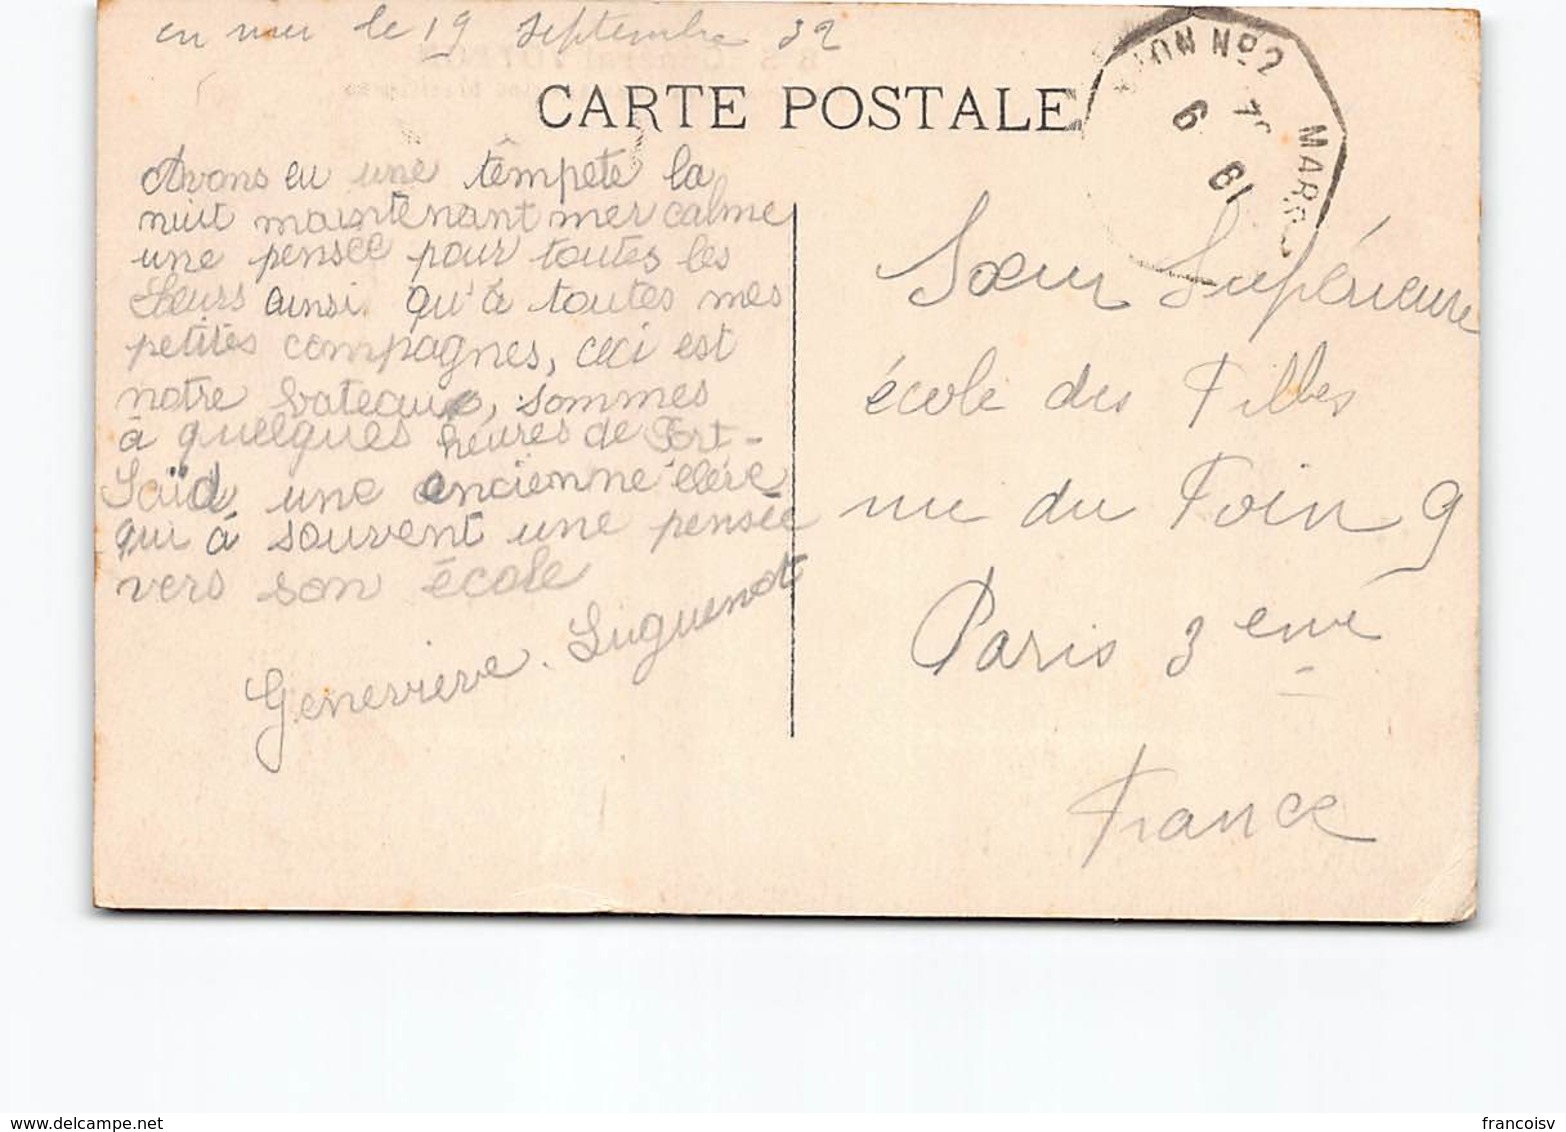 en mer le 19 septembre 32
CARTE POSTALE
Avons eu une têmpete la
nuit maintenant mer calme
une pensée pour toutes les
Sœurs ainsi qu'à toutes mes
petites compagnes, ceci est
notre bateau, sommes
à quelques heures de Port-
Saïd, une ancienne élève
qui à souvent une pensée
vers son école
Geneviève. Luguenot
N°2
MARS
Sœur Supérieure
école des Filles
rue du Foin 9
Paris 3 eme
France
delcampe.net
francoisv